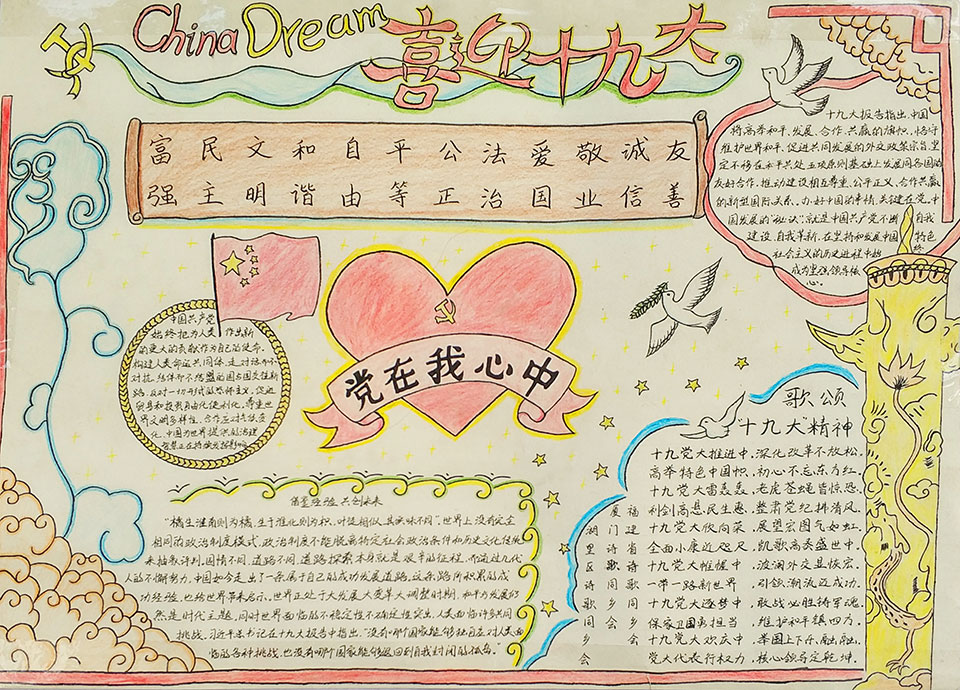 China Dream 喜迎十九大
富 民 文 和 自 平 公 法 爱 敬 诚 友
强 主 明 谐 由 等 正 治 国 业 信 善
十九大报告指出,中国
将高举和平、发展、合作、共赢的旗帜,恪守
维护世界和平、促进共同发展的外交政策宗旨,坚
定不移在和平共处五项原则基础上发展同各国的
友好合作,推动建设相互尊重、公平正义、合作共赢
的新型国际关系。办好中国的事情,关键在党。中
国发展的"秘诀":就是中国共产党不断自我
建设、自我革新,在坚持和发展中国特色
社会主义的历史进程中始终
成为坚强领导核
心。
中国共产党
始终把为人类作出新
的更大的贡献作为自己的使命。
构建人类命运共同体,走对话而不
对抗、结伴而不结盟的国与国交往新
路,
界文明多样性,
党在我心中
歌颂
十九大精神
十九党大推进中,深化改革不放松,
高举特色中国帜,初心不忘东方红。
十九党大雷轰轰,老虎苍蝇皆惊恐,
利剑高悬民生愿,整肃党纪排清风。
十九党大欣向荣,展望宏图气如虹,
全面小康近咫尺,凯歌高奏盛世中。
十九党大帷幄中,波澜外交显恢宏,
一带一路新世界,引领潮流迈成功。
十九党大逐梦中,敢战必胜铸军魂,
保家卫国勇担当,维护和平镇四方。
十九党大欢庆中,举国上下乐融融,
党大代表行权力,核心领导定乾坤。
福建省诗歌同乡会
厦门诗歌同乡会
湖里区诗歌同乡会
"橘生淮南则为橘,生于淮北则为枳,叶徒相似,其实味不同"。世界上没有完全
相同的政治制度模式,政治制度不能脱离特定社会政治条件和历史文化传统
来抽象评判。国情不同,道路不同,道路探索本身就是艰辛曲征程,而通过九代
人的不懈努力,中国如今走出了一条属于自己的成功发展道路,这条路所积累的成
功经验,也给世界带来启示。世界正处于大发展大变革大调整时期,和平与发展仍
然是时代主题,同时世界面临的不稳定性不确定性突出,人类面临许多共同
挑战。习近平总书记在十九大报告中指出:"没有哪个国家能够独自应对人类面
临的各种挑战,也没有哪个国家能够退回到自我封闭的孤岛。"